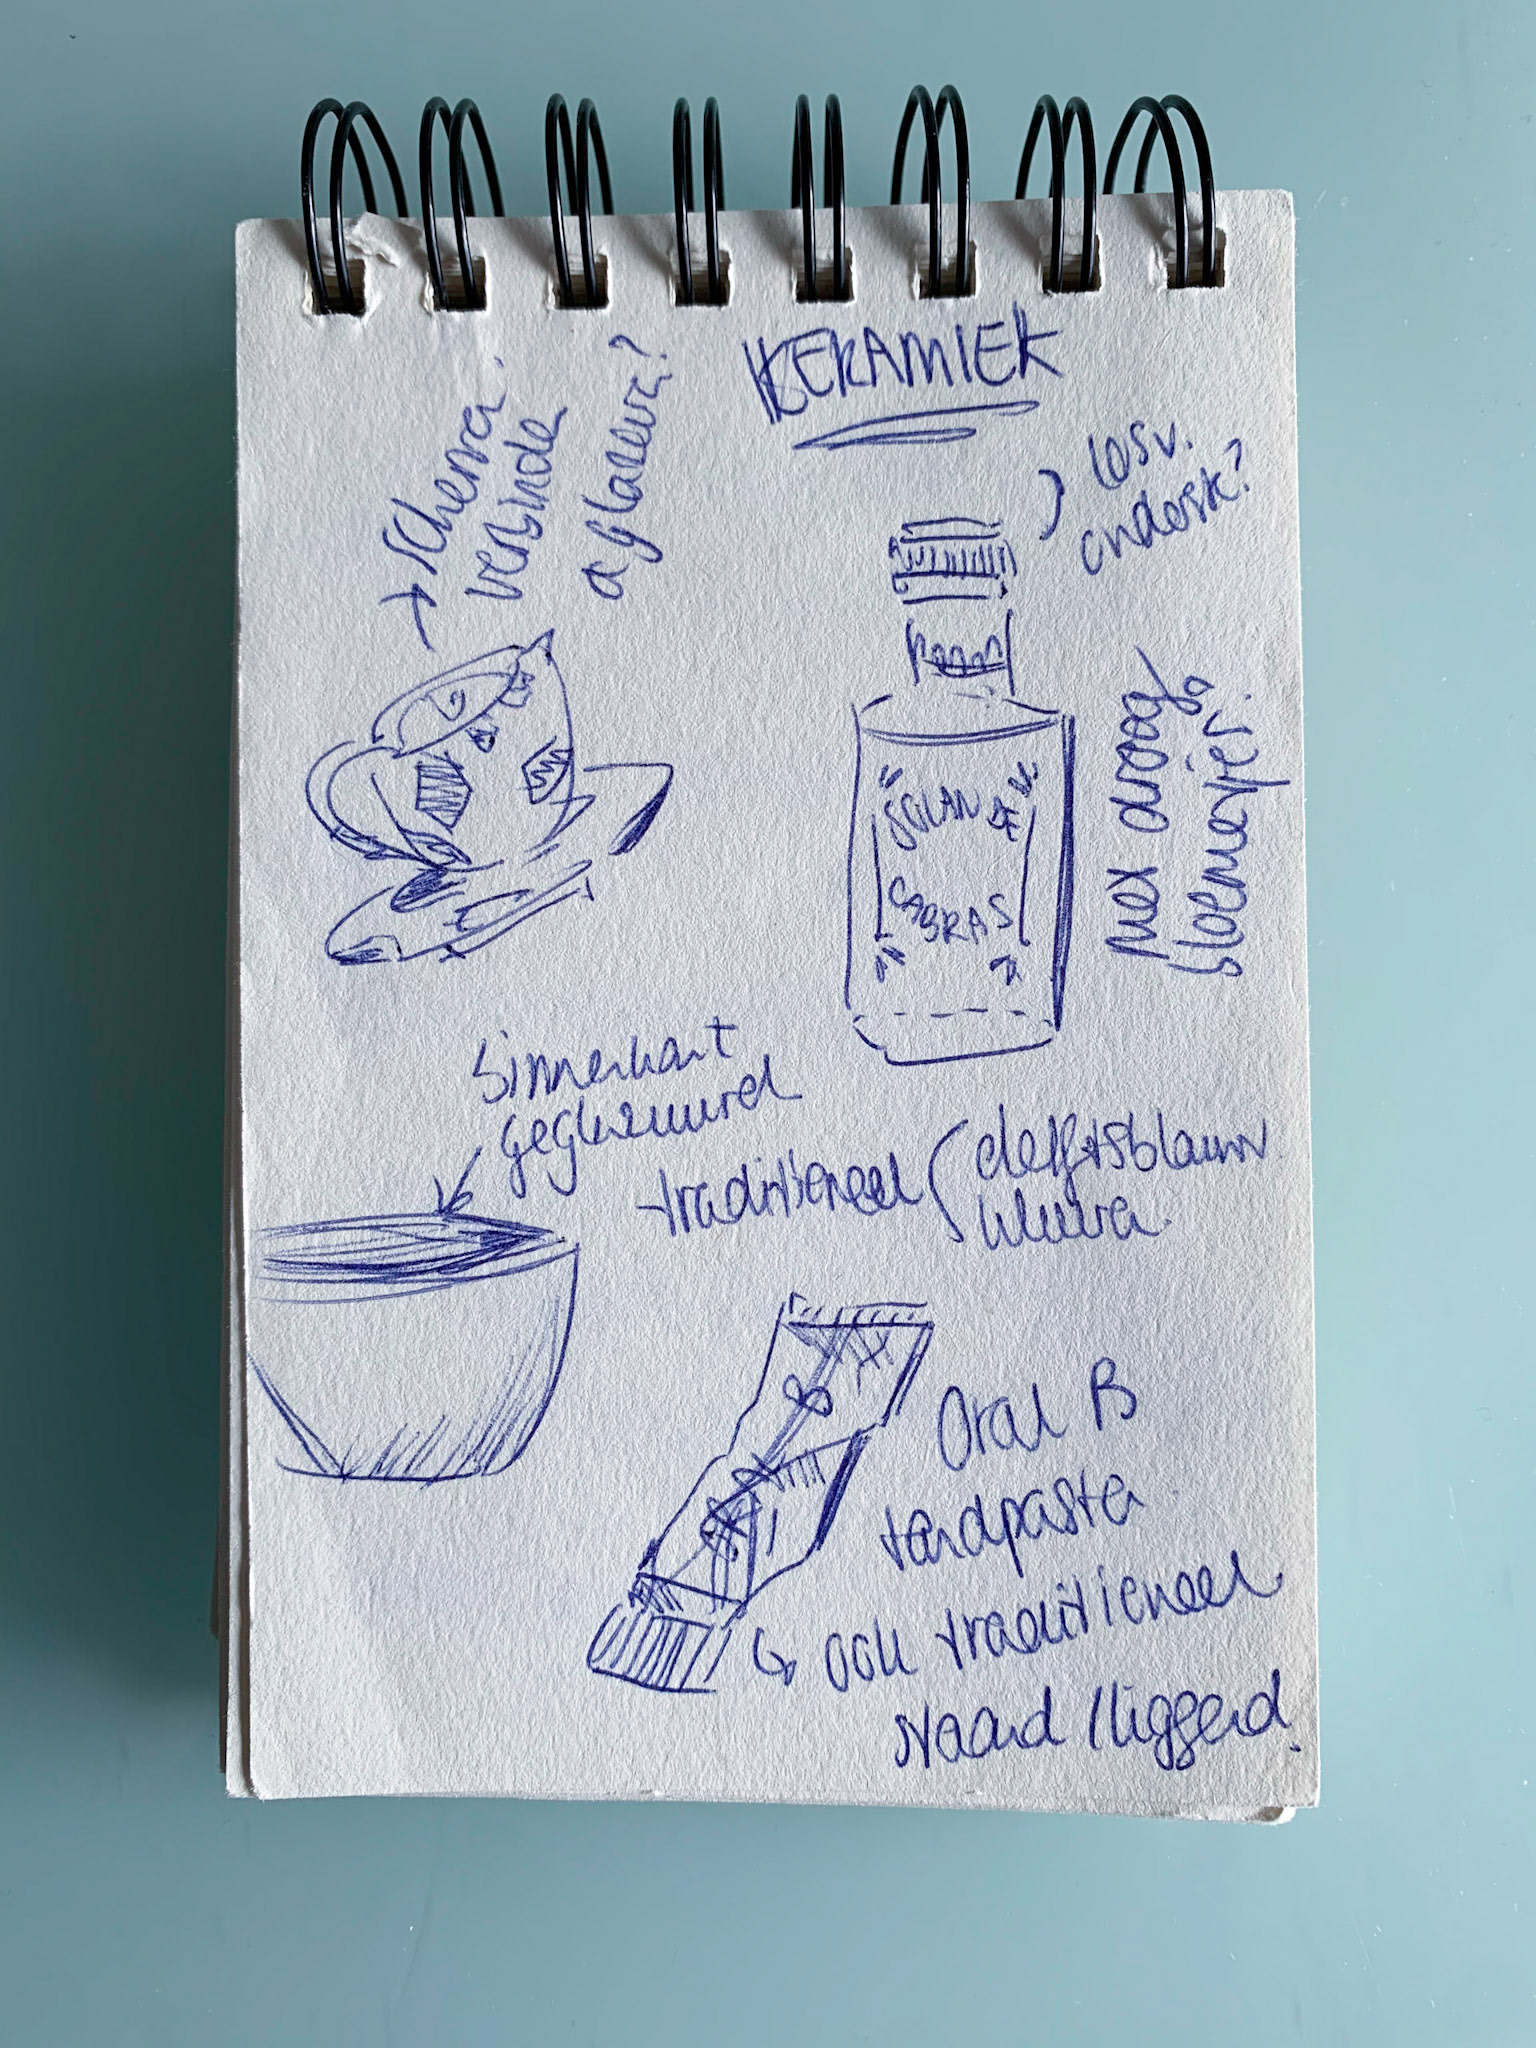 KERAMIEK
→ scherva.
verbinde
a glazeva?
losv.
onderste?
SOLAN DE
CABRAS
Mex droog
bloemetjes.
binnenkant
geglazuurd
traditieneel
delftsblauw
kleura.
Oral B
tandpasta
↳ ook traditieneel
staand / liggend.